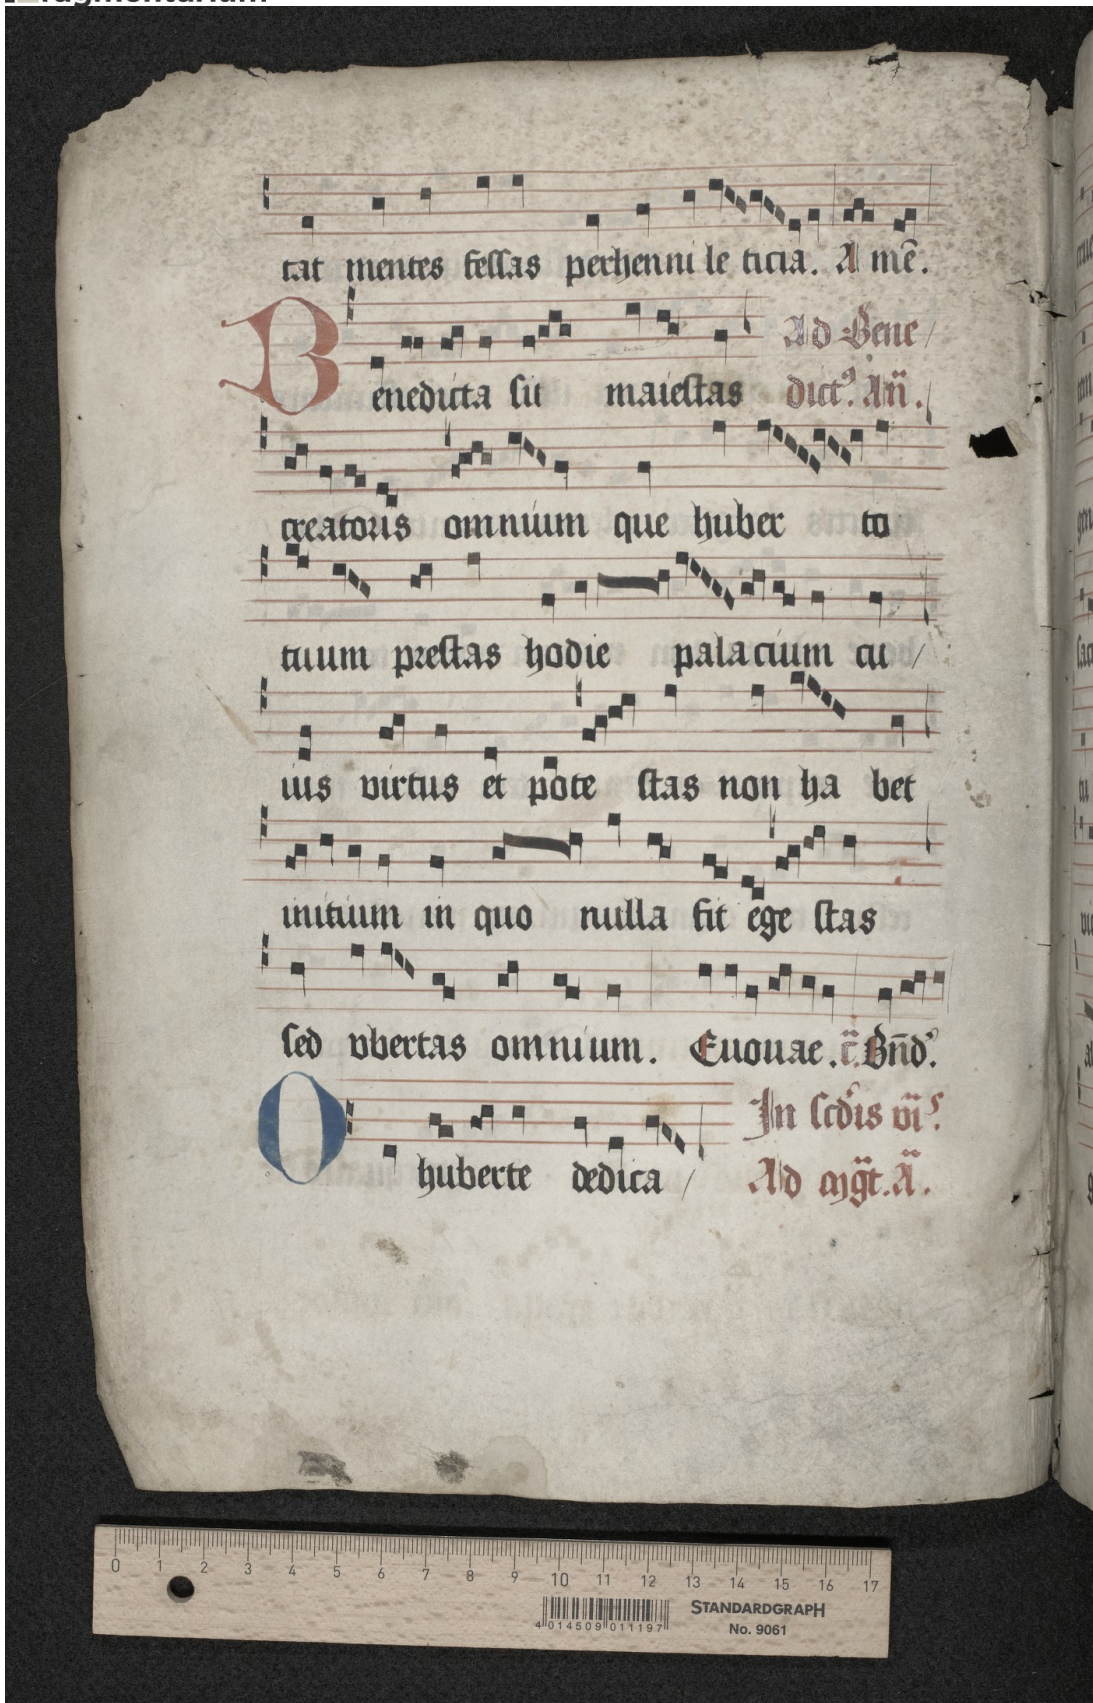 tat mentes fessas perhenni le ticia. A mē.
Benedicta sit maiestas Ad Bene/
dict⁹. Añ.
creatoris omnium que huber to
tuum prestas hodie palacium cu /
ius virtus et pote stas non ha bet
initium in quo nulla fit ege stas
sed vbertas omnium. Euouae.
O huberte dedica /
Ad
0 1 2 3 4 5 6 7 8 9 10 11 12 13 14 15 16 17
4 014509 011197
STANDARDGRAPH
No. 9061